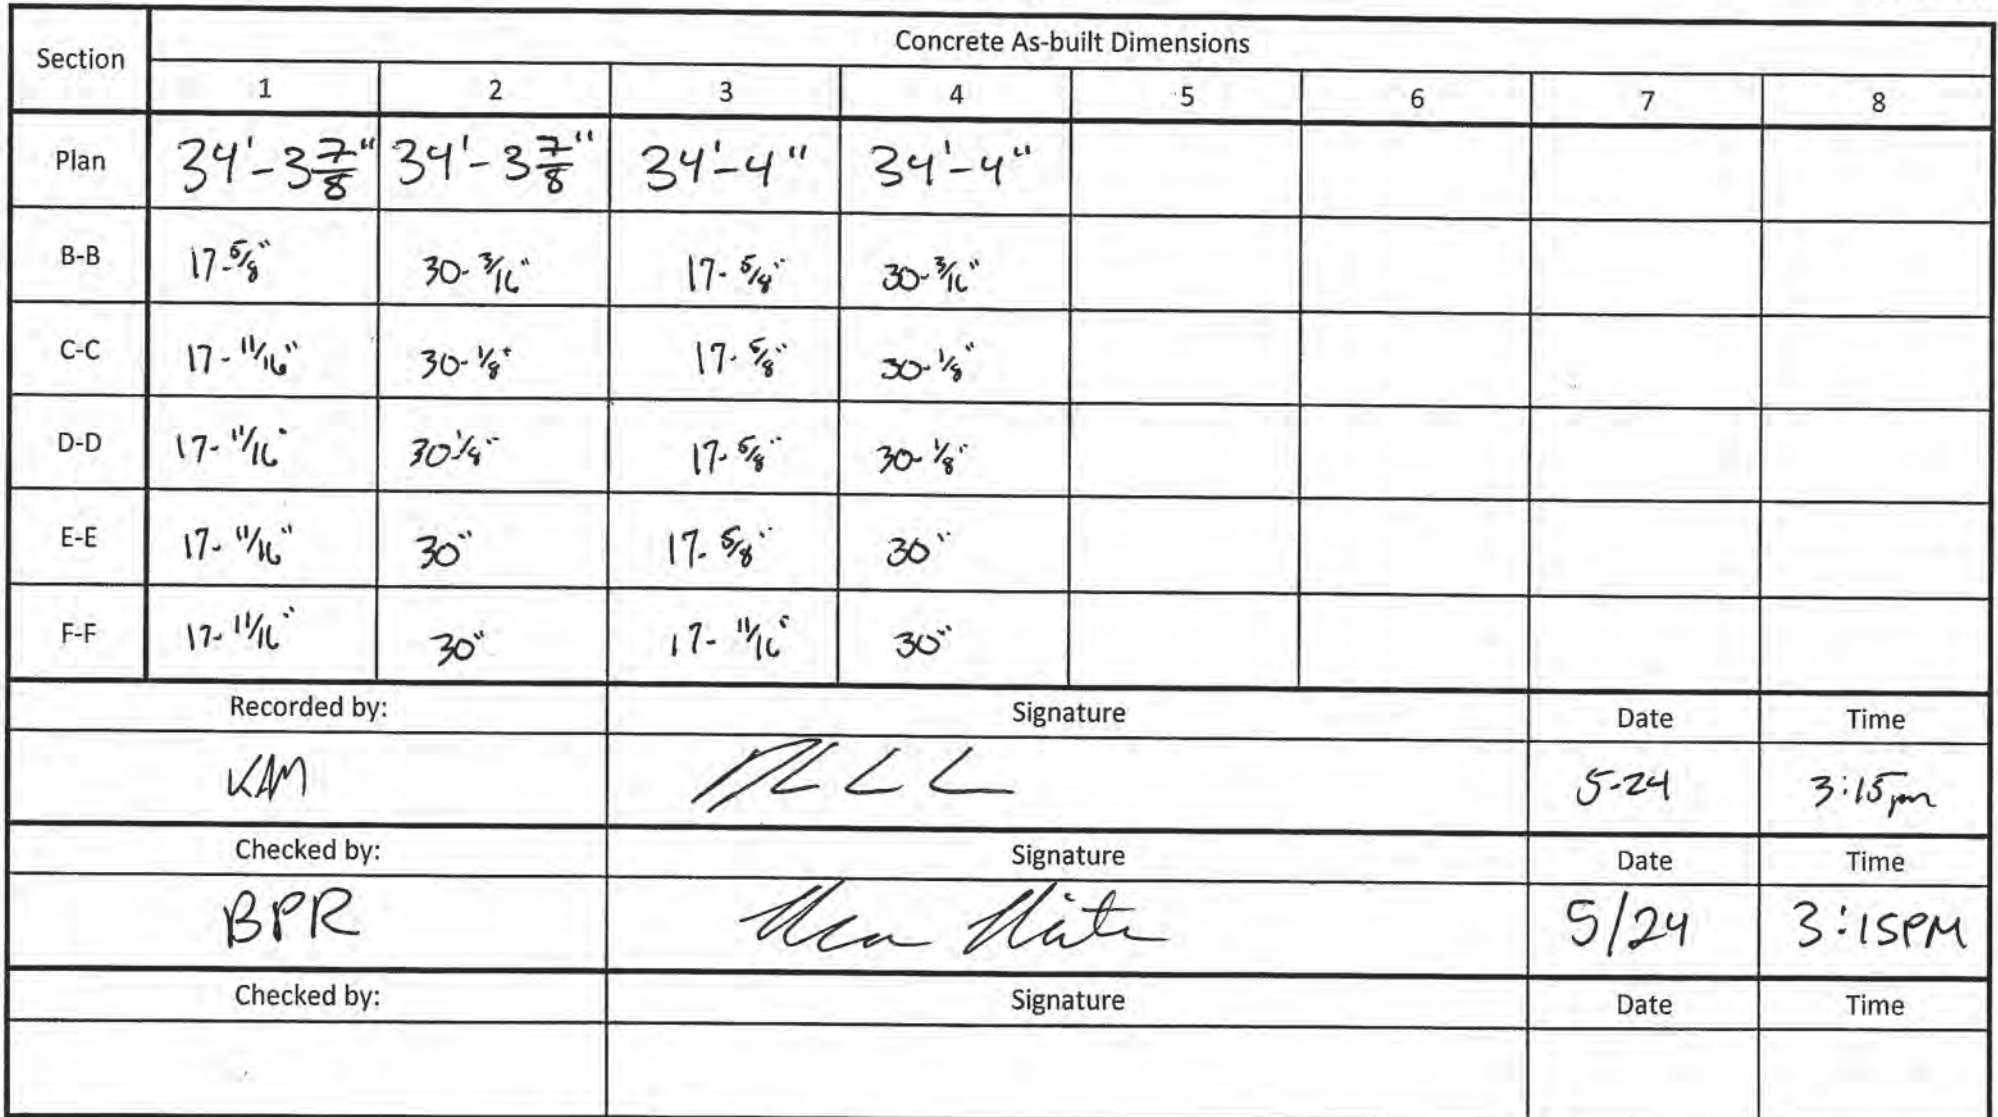 Concrete As-built Dimensions
Section 1 2 3 4 5 6 7 8
Plan 34'-3 7/8" 34'-3 7/8" 34'-4" 34'-4"
B-B 17-5/8" 30-3/16" 17-5/8" 30-3/16"
C-C 17-11/16" 30-1/8" 17-5/8" 30-1/8"
D-D 17-11/16" 17-5/8" 30-1/8"
E-E 17-11/16" 30" 17-5/8" 30"
F-F 17-11/16" 30" 17-11/16" 30"
Recorded by: Signature Date Time
KAM 5-24 3:15pm
Checked by: Signature Date Time
BPR 5/24 3:15PM
Checked by: Signature Date Time